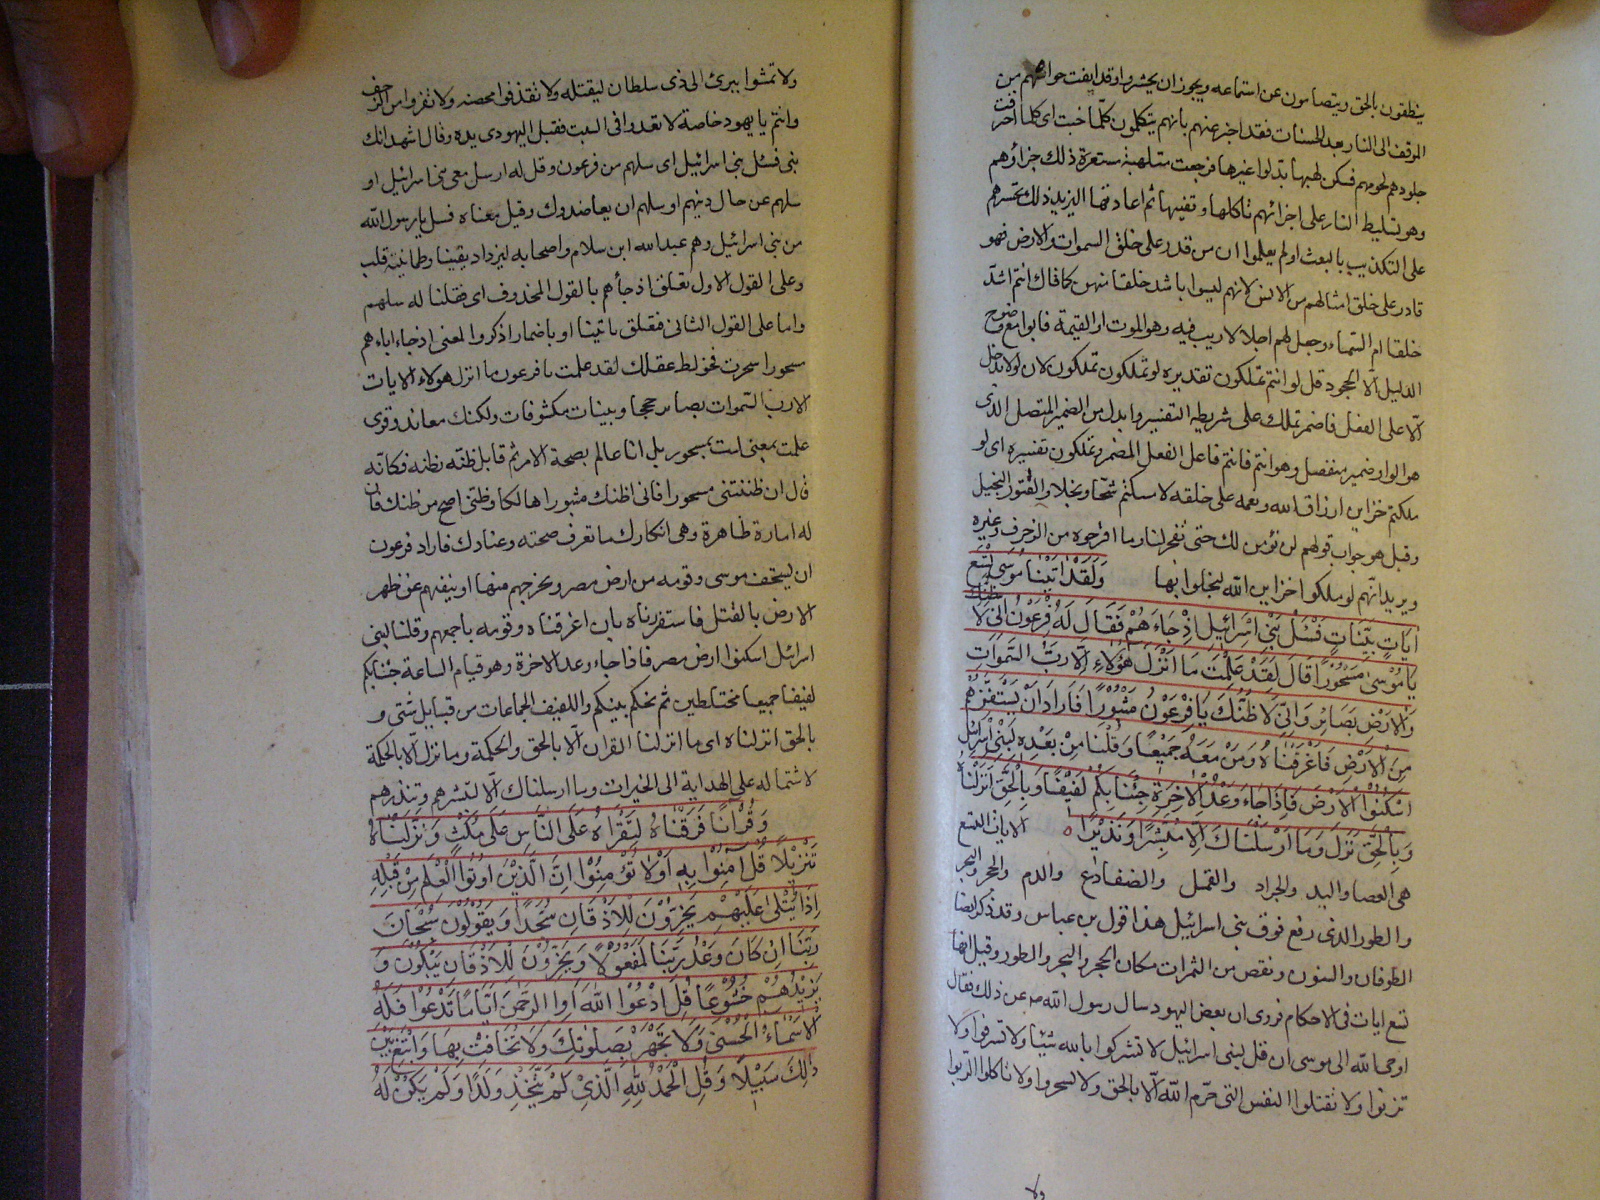 ينطقون بالحق ويتصامون عن استماعه ويجوز ان يحشروا وقد ايفت حواسهم من
الموقف الى النار بعد الحساب فقد اخبر عنهم بانهم يتكلمون كلما خبت اى كلما احرقت
جلودهم لحومهم فسكن لهبها بدلوا غيرها فرجعت متلهبة مستعرة ذلك جزاؤهم
وهو تسليط النار على اجزائهم تاكلها وتفنيها ثم اعادتها ليزيد ذلك تحسرهم
على التكذيب بالبعث اولم يعلموا ان من قدر على خلق السموات والارض فهو
قادر على خلق امثالهم من الانس لانهم ليسوا باشد خلقا منهن كما قال ءانتم اشد
خلقا ام السماء وجعل لهم اجلا لا ريب فيه وهو الموت او القيمة فابوا مع وضوح
الدليل الا الجحود قل لو انتم تملكون تقديره لو تملكون تملكون لان لو لا تدخل
الا على الفعل فاضمر تملك على شريطة التفسير وابدل من الضمير المتصل الذى
هو الواو ضمير منفصل وهو انتم فانتم فاعل الفعل المضمر وتملكون تفسيره اى لو
ملكتم خزاين ارزاق الله ونعمه على خلقه لامسكتم شحا وبخلا والقتور البخيل
وقيل هو جواب قولهم لن نؤمن لك حتى تفجر لنا وما اقترحوه من الزخرف وغيره
ويريد انهم لو ملكوا خزاين الله لبخلوا بها وَلَقَدْ اٰتَيْنَا مُوسٰى تِسْعَ
اٰيَاتٍ بَيِّنَاتٍ فَسْئَلْ بَنِى اِسْرَائِيلَ اِذْ جَاءَهُمْ فَقَالَ لَهُ فِرْعَوْنُ اِنِّى لَاَظُنُّكَ
يَا مُوسٰى مَسْحُورًا قَالَ لَقَدْ عَلِمْتَ مَا اَنْزَلَ هٰؤُلَاءِ اِلَّا رَبُّ السَّمٰوَاتِ
وَالْاَرْضِ بَصَائِرَ وَاِنِّى لَاَظُنُّكَ يَا فِرْعَوْنُ مَثْبُورًا فَاَرَادَ اَنْ يَسْتَفِزَّهُمْ
مِنَ الْاَرْضِ فَاَغْرَقْنَاهُ وَمَنْ مَعَهُ جَمِيْعًا وَقُلْنَا مِنْ بَعْدِهِ لِبَنِى اِسْرَائِيلَ
اسْكُنُوا الْاَرْضَ فَاِذَا جَاءَ وَعْدُ الْاٰخِرَةِ جِئْنَا بِكُمْ لَفِيْفًا وَبِالْحَقِّ اَنْزَلْنَاهُ
وَبِالْحَقِّ نَزَلَ وَمَا اَرْسَلْنَاكَ اِلَّا مُبَشِّرًا وَنَذِيْرًا الايات التسع
هى العصا واليد والجراد والقمل والضفادع والدم والحجر والبحر
والطور الذى رفع فوق بنى اسرائيل هذا قول بن عباس وقد ذكر ايضا
الطوفان والسنون ونقص من الثمرات مكان الحجر والبحر والطور وقيل انها
تسع ايات فى الاحكام فروى ان بعض اليهود سال رسول الله عن ذلك فقال
اوحى الله الى موسى ان قل لبنى اسرائيل لا تشركوا بالله شيئا ولا تسرفوا ولا
تزنوا ولا تقتلوا النفس التى حرم الله الا بالحق ولا تسحروا ولا تاكلوا الربوا
ولا
ولا تمشوا ببرئ الى ذى سلطان ليقتله ولا تقذفوا محصنة ولا تفروا من الزحف
وانتم يا يهود خاصة لا تعدوا فى السبت فقبل اليهودى يده وقال اشهد انك
نبى فسئل بنى اسرائيل اى سلهم من فرعون وقل له ارسل معى بنى اسرائيل او
سلهم عن حال دينهم او سلهم ان يعاضدوك وقيل معناه فسل يا رسول الله
من بنى اسرائيل وهم عبد الله ابن سلام واصحابه ليزداد يقينا وطمانينة قلب
وعلى القول الاول تعلق اذ جاءهم بالقول المحذوف اى فقلنا له سلهم
واما على القول الثانى فتعلق باتينا او باضمار اذكروا المعنى اذ جاء اباءهم
مسحورا سحرت فخولط عقلك لقد علمت يا فرعون ما انزل هولاء الايات
الا رب السموات بصاير حججا وبينات مكشوفات ولكنك معاند وقرى
علمت بمعنى لست بمسحور بل انا عالم بصحة الامر ثم قابل ظنه بظنه فكانه
قال ان ظننتنى مسحورا فانى اظنك مثبورا هالكا وظنى اصح من ظنك فان
له امارة ظاهرة وهى انكارك ما تعرف صحته وعنادك فاراد فرعون
ان يستخف موسى وقومه من ارض مصر ويخرجهم منها او ينفيهم عن ظهر
الارض بالقتل فاستفززناه بان اغرقناه وقومه باجمعهم وقلنا لبنى
اسرائل اسكنوا ارض مصر فاذا جاء وعد الاخرة وهو قيام الساعة جئنا بكم
لفيفا جميعا مختلطين ثم نحكم بينكم واللفيف الجماعات من قبايل شتى و
بالحق انزلناه اى ما انزلنا القران الا بالحق والحكمة وما نزل الا بالحكمة
لاشتماله على الهداية الى الخيرات وما ارسلناك الا لتبشرهم وتنذرهم
وَقُرْاٰنًا فَرَقْنَاهُ لِتَقْرَاَهُ عَلَى النَّاسِ عَلٰى مُكْثٍ وَنَزَّلْنَاهُ
تَنْزِيْلًا قُلْ اٰمِنُوْا بِهِ اَوْ لَا تُؤْمِنُوْا اِنَّ الَّذِيْنَ اُوتُوا الْعِلْمَ مِنْ قَبْلِهِ
اِذَا يُتْلٰى عَلَيْهِمْ يَخِرُّوْنَ لِلْاَذْقَانِ سُجَّدًا وَيَقُوْلُوْنَ سُبْحَانَ
رَبِّنَا اِنْ كَانَ وَعْدُ رَبِّنَا لَمَفْعُوْلًا وَيَخِرُّوْنَ لِلْاَذْقَانِ يَبْكُوْنَ وَ
يَزِيْدُهُمْ خُشُوْعًا قُلِ ادْعُوْا اللّٰهَ اَوِ ادْعُوا الرَّحْمٰنَ اَيًّا مَا تَدْعُوْا فَلَهُ
الْاَسْمَاءُ الْحُسْنٰى وَلَا تَجْهَرْ بِصَلٰوتِكَ وَلَا تُخَافِتْ بِهَا وَابْتَغِ بَيْنَ
ذٰلِكَ سَبِيْلًا وَقُلِ الْحَمْدُ لِلّٰهِ الَّذِيْ لَمْ يَتَّخِذْ وَلَدًا وَلَمْ يَكُنْ لَهُ